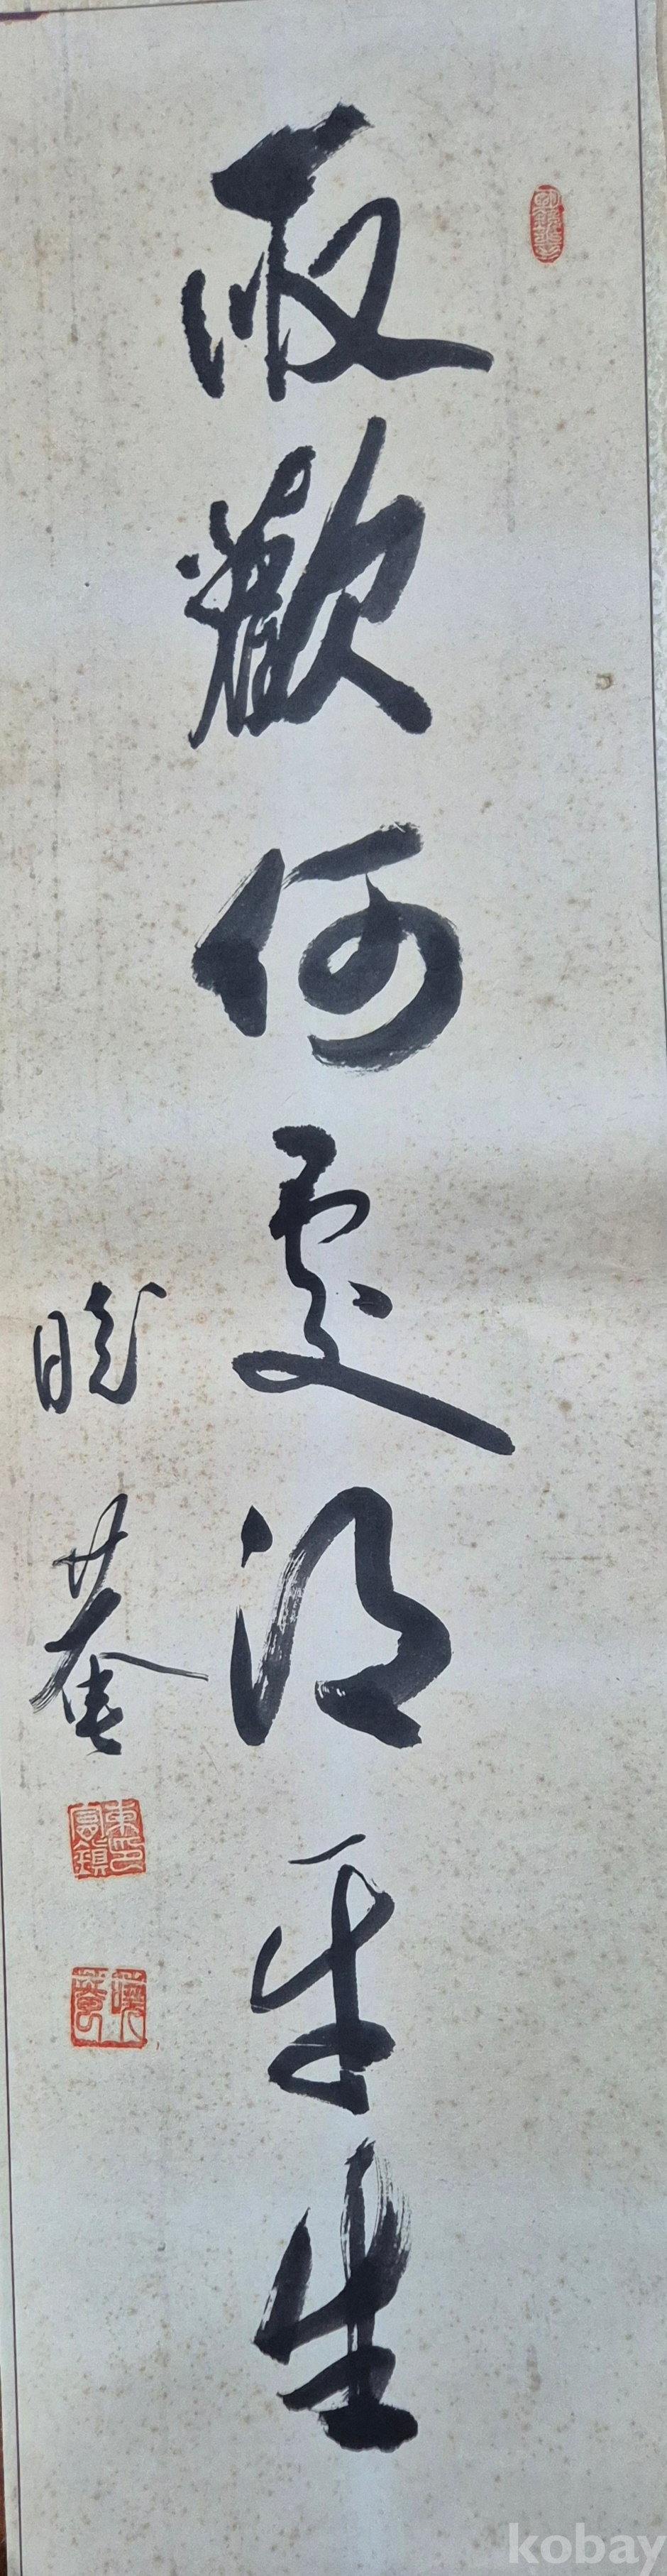 取歡何處得平生
曉菴
kobay